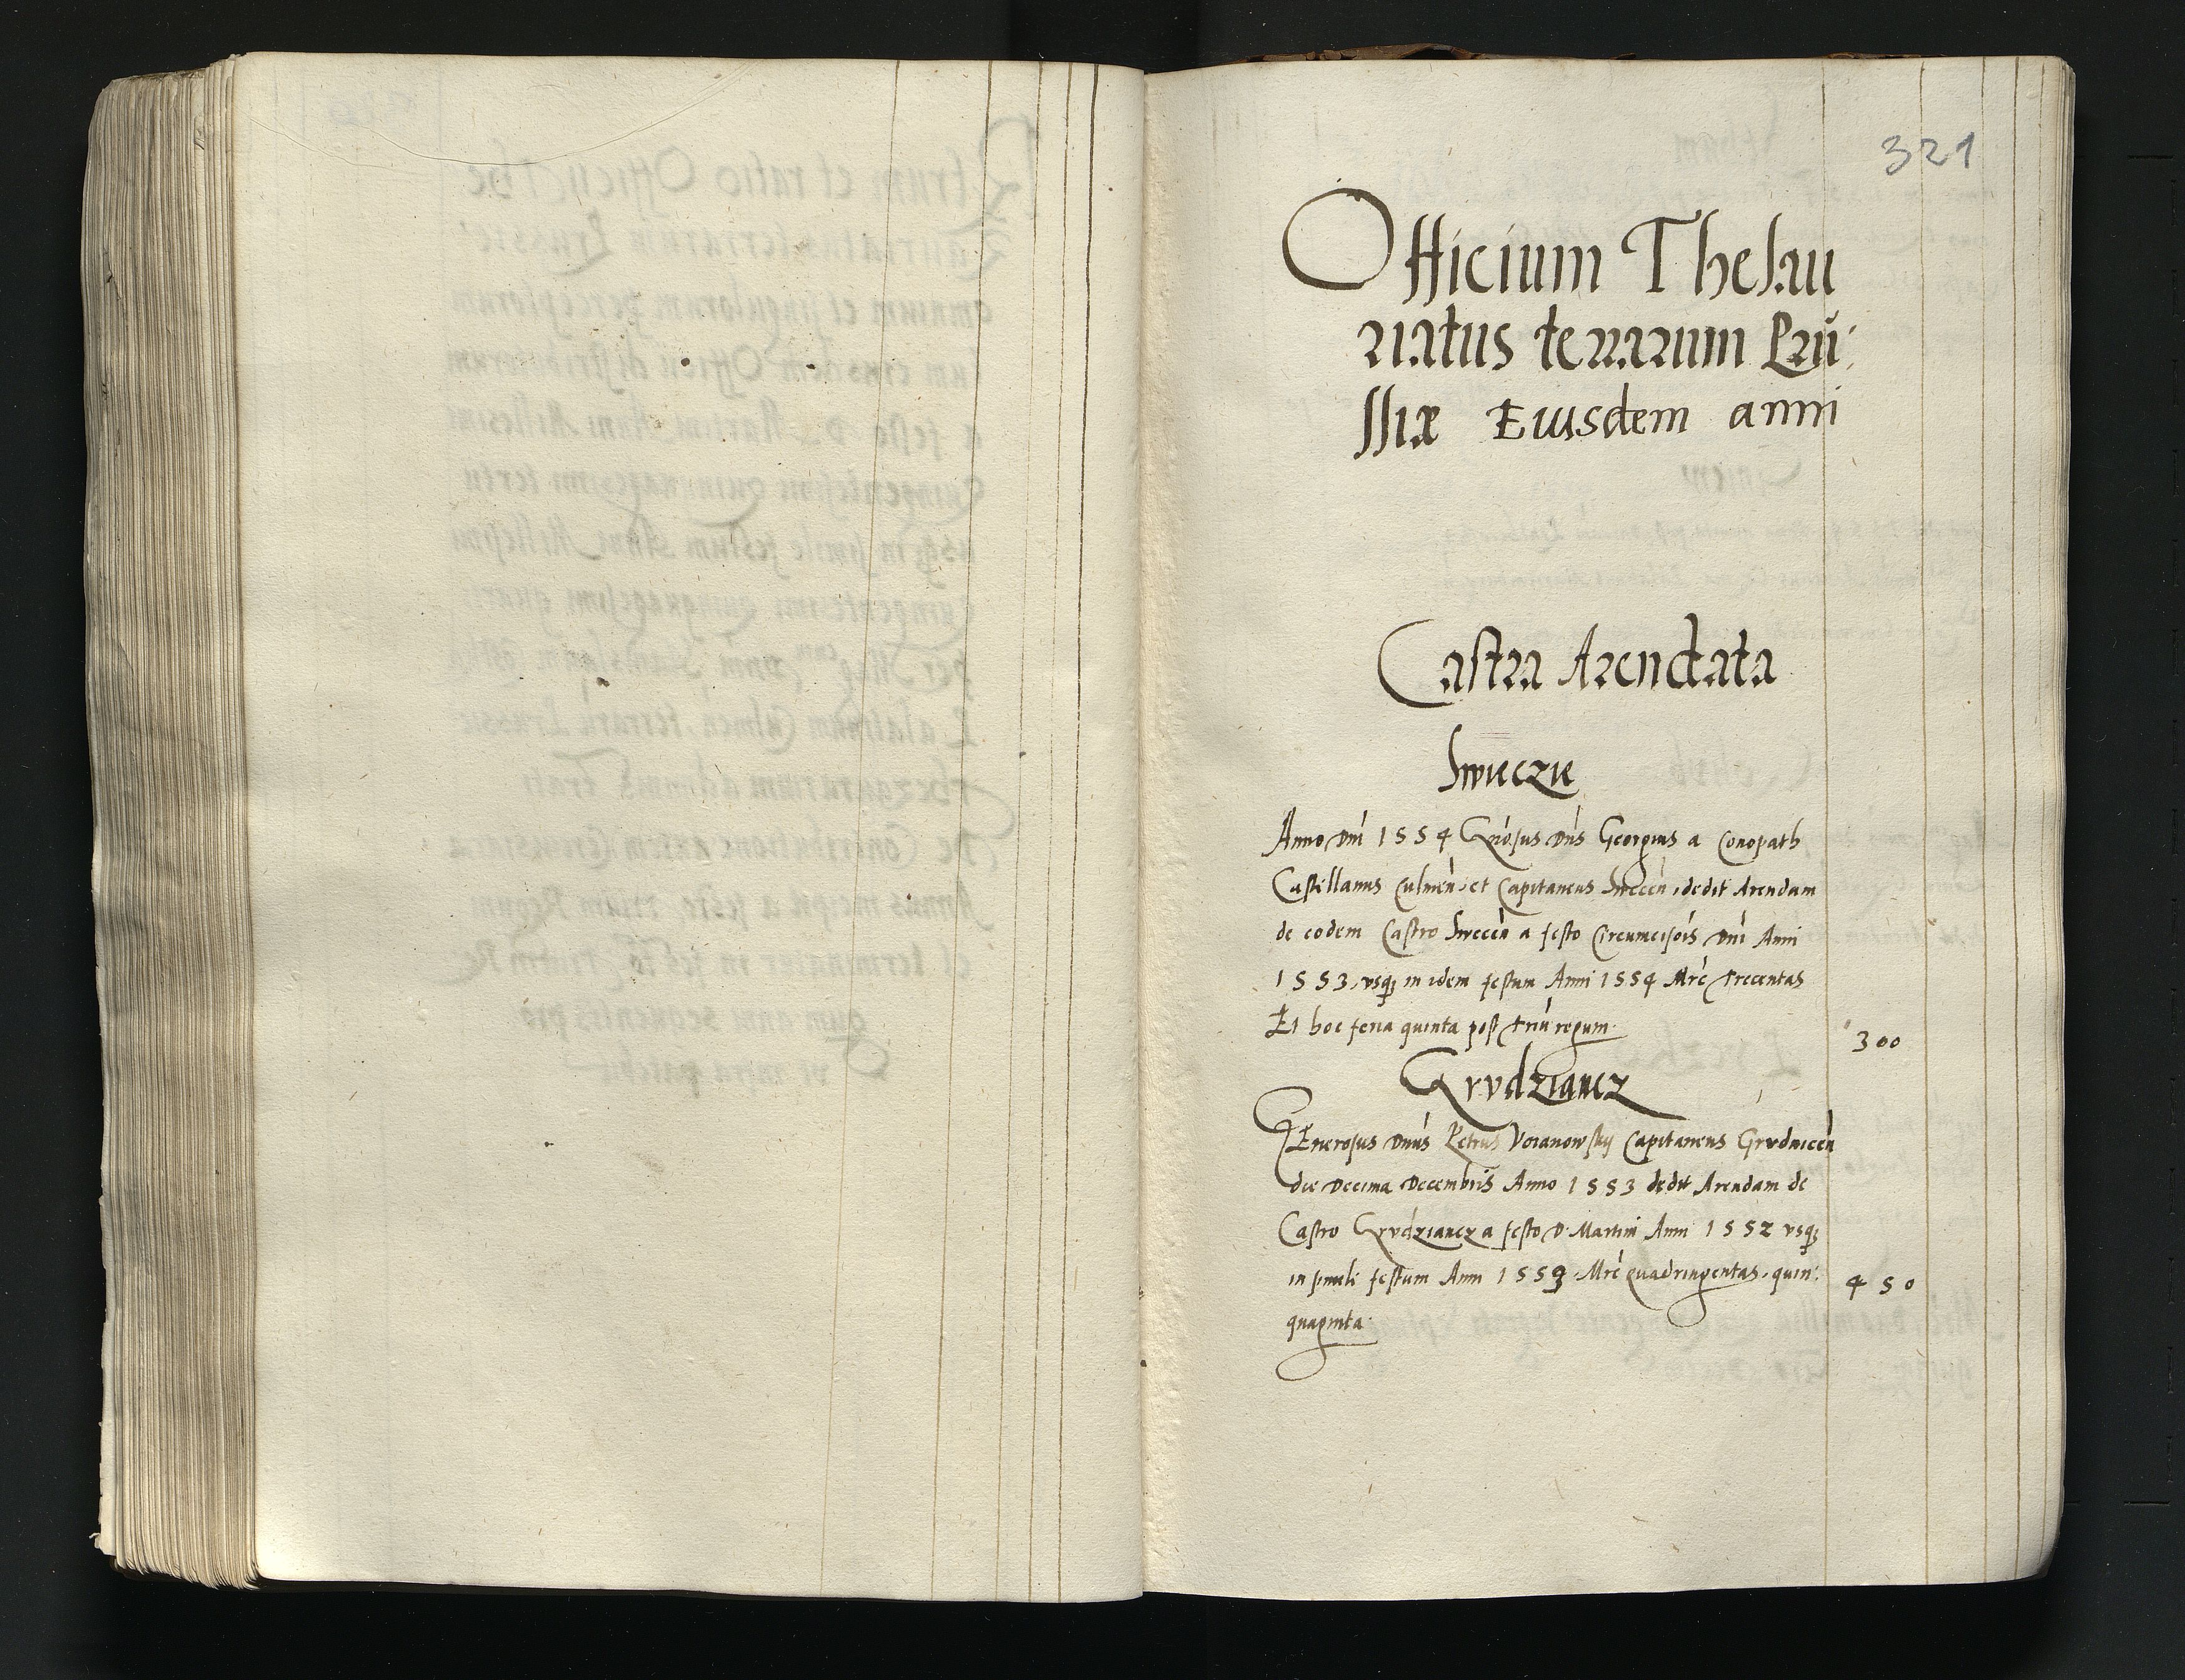 321
Officium Thesau
riatus terrarum Prŭ:
ssiæ Eiusdem anni
Castra Arendata
Swieczie
Anno Dni 1554 Gnosus Dns Georgius a Conopath
Castellanus Culmen et Capitaneus Swecen dedit Arendam
de eodem Castro Swecen a festo Circumcisois Dni Anni
1553, vsq in idem festum Anni 1554 Mrc Trecentas
Et hoc feria quinta post Triu regum 300
Grvdziancz
GEnerosus Dnus Petrus Voianowskij Capitaneus Grvdnicen
die Decima Decembris Anno 1553 dedit Arendam de
Castro Grvdziancz a festo D. Martini Anni 1552 vsq
in simili festum Anni 1553. Mrc quadringentas. quin: 450
quaginta.